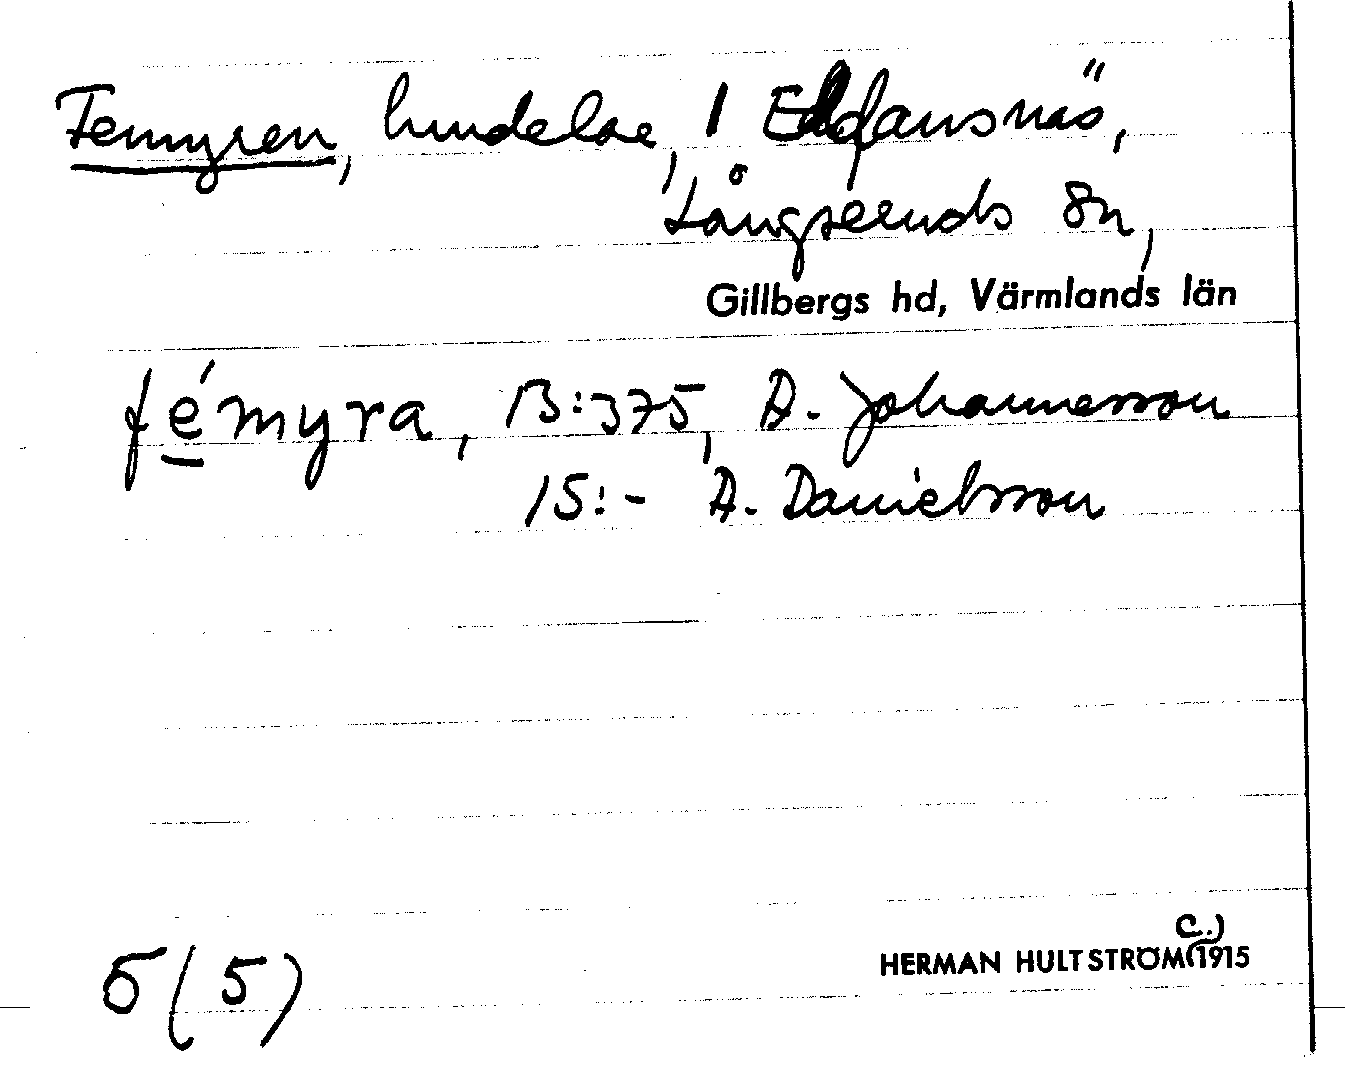 Femyren, lundelar, 1 Elofansnäs,
Långseruds sn,
Gillbergs hd, Värmlands län
fémyra, 13:375, A. Johannesson
15:- A. Danielsson
5(5)
C.)
HERMAN HULTSTRÖM (1915